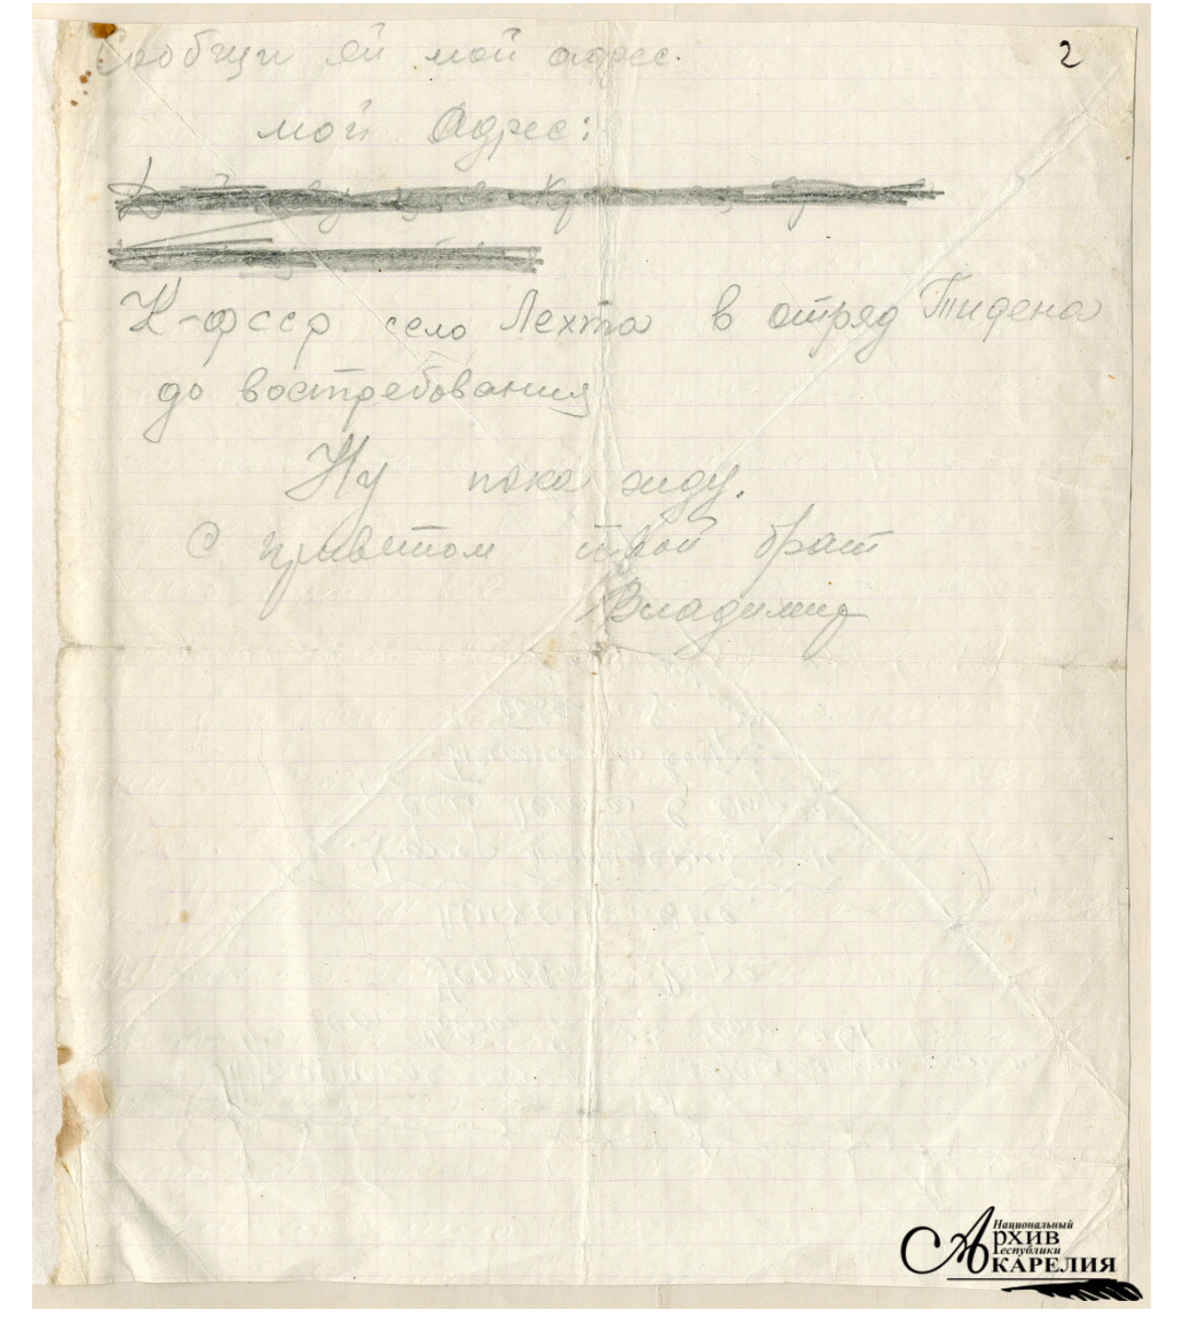 Сообщи ей мой адрес.
2
мой Адрес:
К-фсср село Лехта в отряд Тидена
до востребования
Ну пока жду.
С приветом твой брат
Владимир
Национальный
Архив
Республики
КАРЕЛИЯ